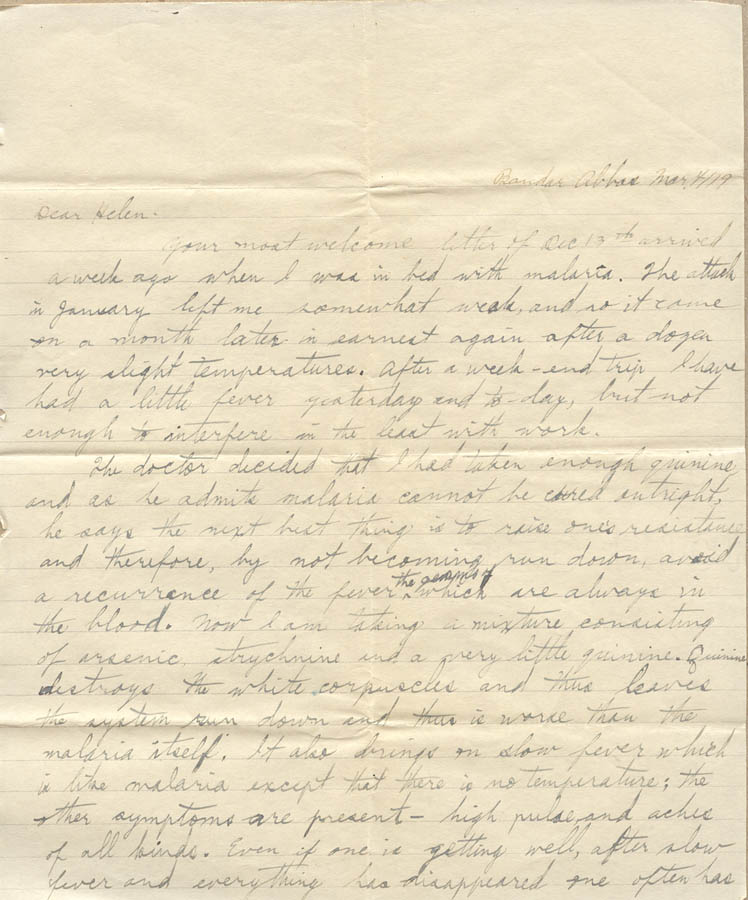 Bandar Abbas Mar 4/19
Dear Helen.
Your most welcome letter of Dec 13th arrived
a week ago when I was in bed with malaria. The attack
in January left me somewhat weak, and so it came
on a month later in earnest again after a dozen
very slight temperatures. After a week-end trip I have
had a little fever yesterday and to-day, but not
enough to interfere in the least with work.
The doctor decided that I had taken enough quinine
and as he admits malaria cannot be cured outright,
he says the next best thing is to raise one's resistance
and therefore, by not becoming run down, avoid
a recurrence of the fever the germs of which are always in
the blood. Now I am taking a mixture consisting
of arsenic, strychnine and a very little quinine. Quinine
destroys the white corpuscles and thus leaves
the system run down and thus is worse than the
malaria itself. It also brings on slow fever which
is like malaria except that there is no temperature; the
other symptoms are present - high pulse and aches
of all kinds. Even if one is getting well, after slow
fever and everything has disappeared one often has